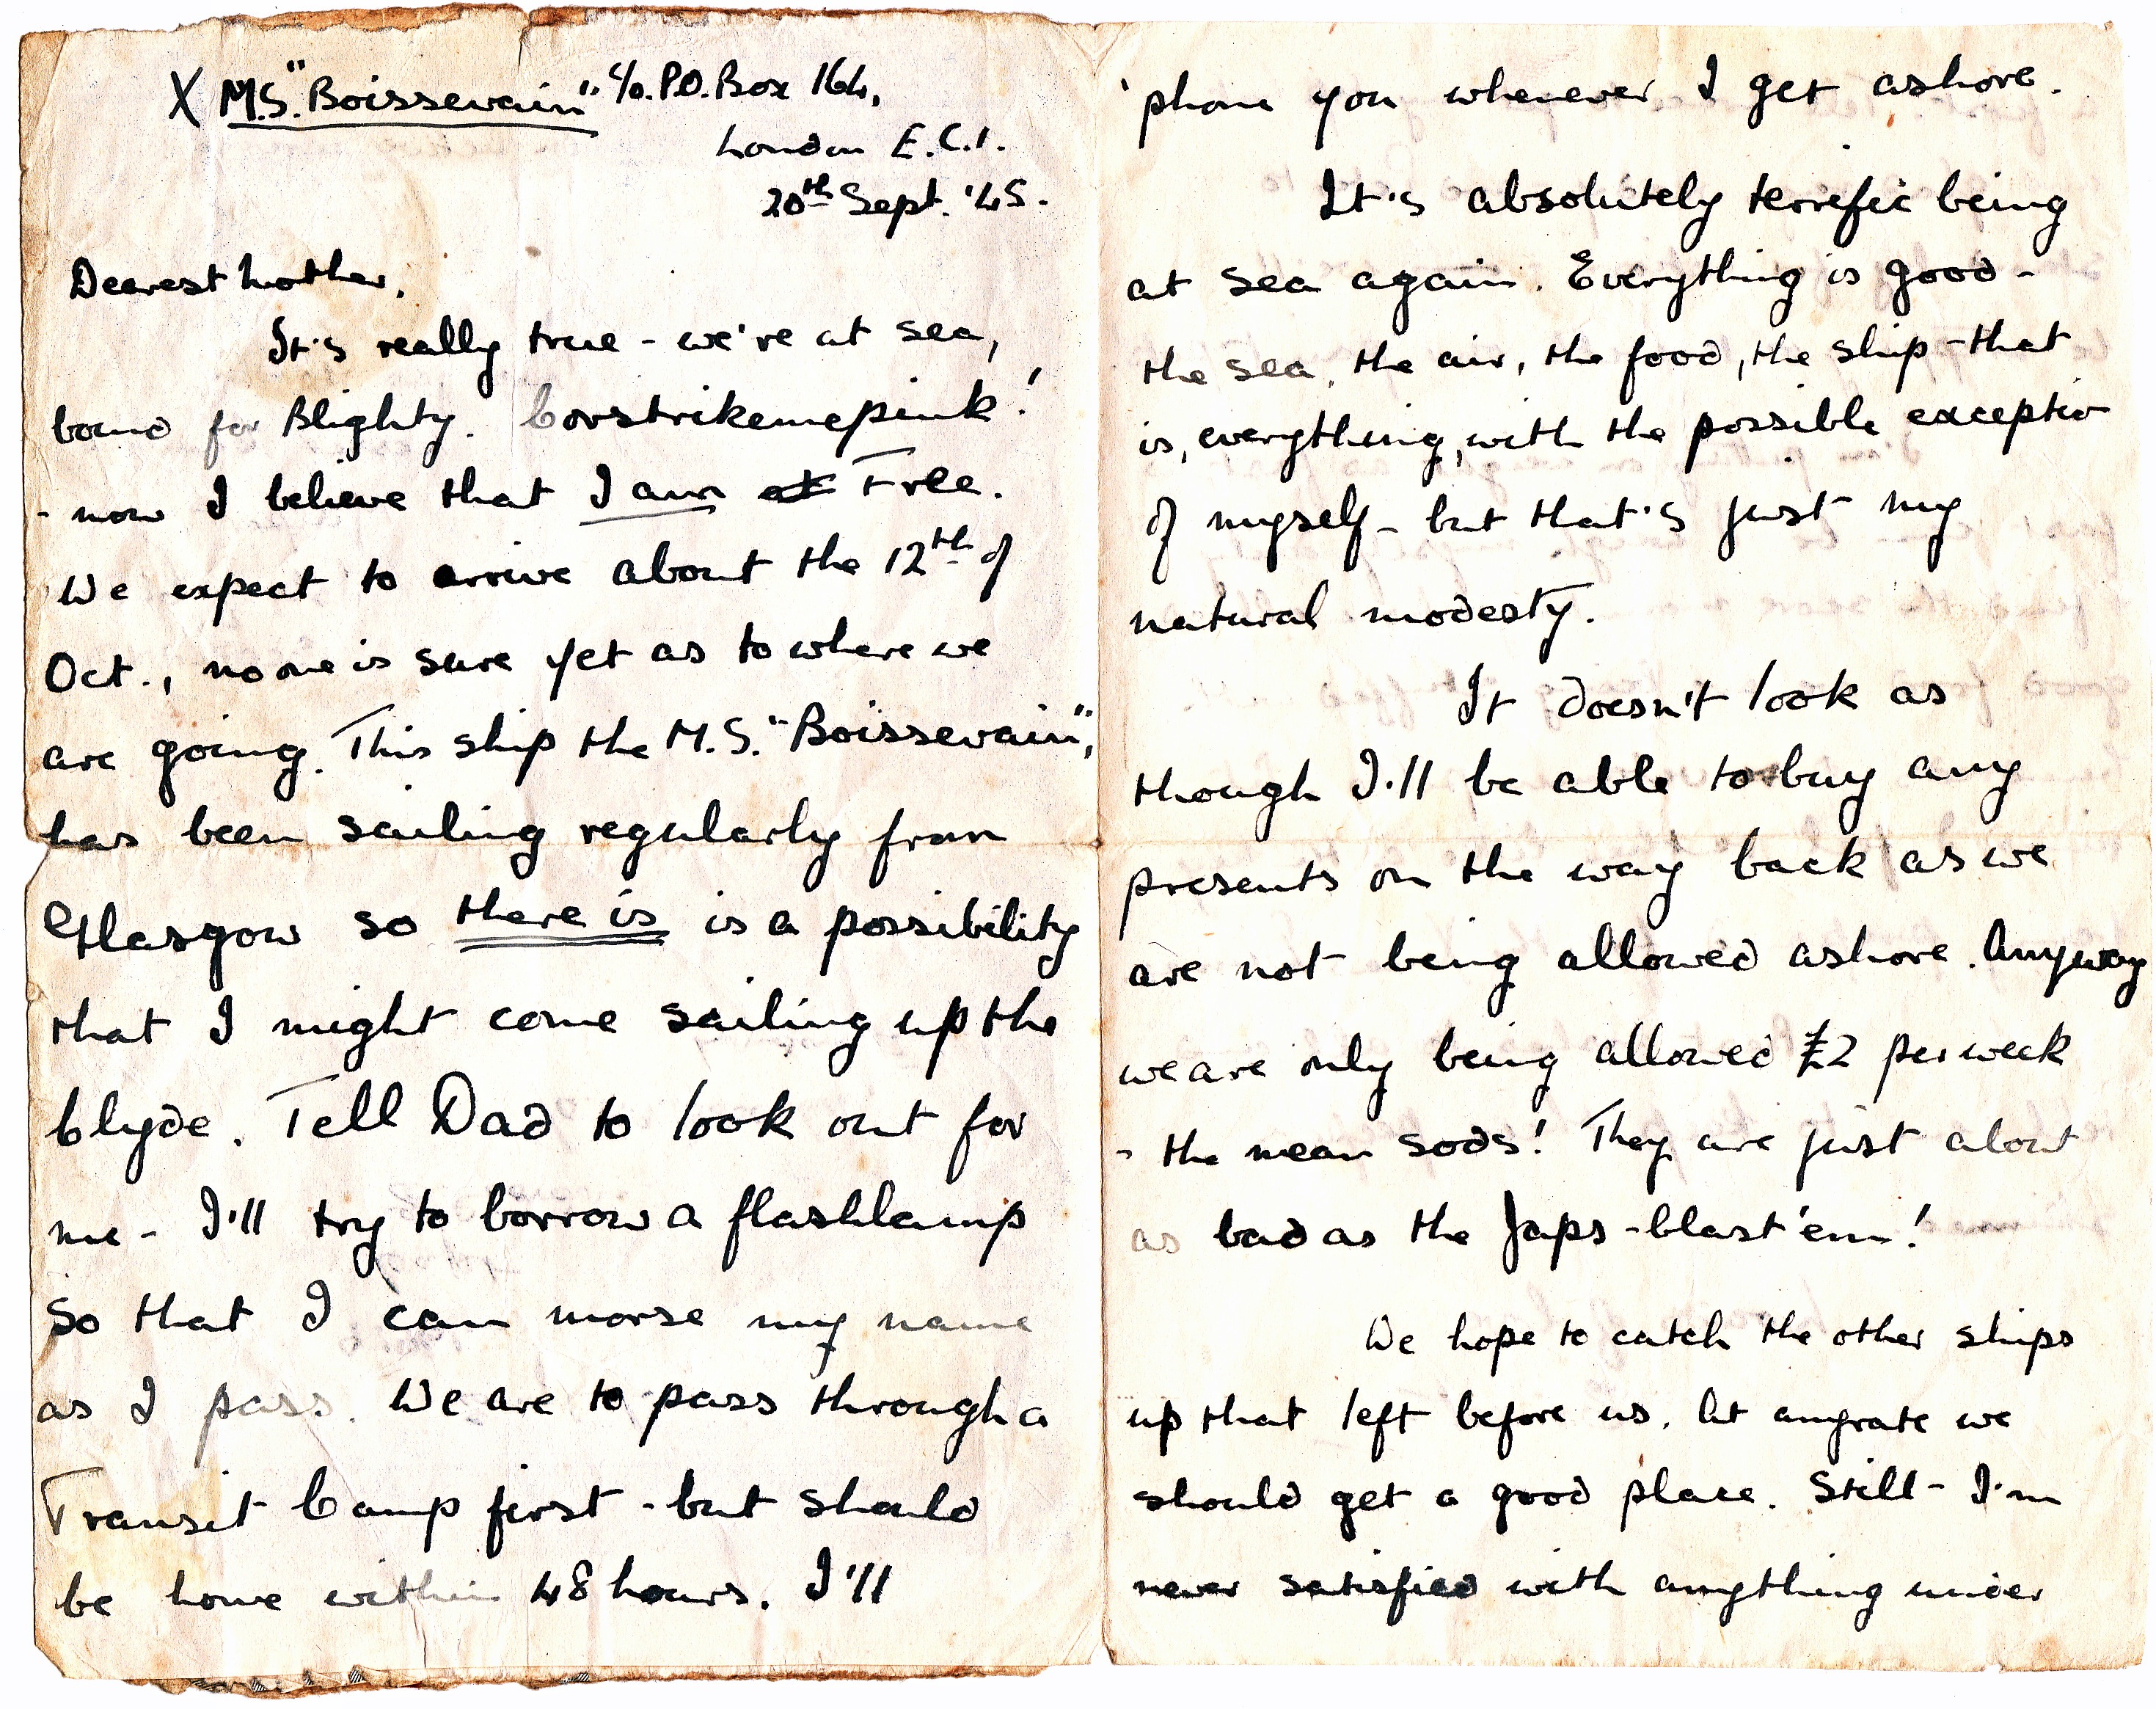 X M.S. "Boissevain" c/o. P.O. Box 164,
London E.C.1.
20th Sept. '45.
Dearest Mother,
It's really true - we're at sea,
bound for Blighty. Corstrikemepink!
- now I believe that I am at Free.
We expect to arrive about the 12th of
Oct., no one is sure yet as to where we
are going. This ship the M.S. "Boissevain",
has been sailing regularly from
Glasgow so there is is a possibility
that I might come sailing up the
Clyde. Tell Dad to look out for
me - I'll try to borrow a flashlamp
so that I can morse my name
as I pass. We are to pass through a
Transit Camp first - but should
be home within 48 hours. I'll
'phone you whenever I get ashore.
It's absolutely terrific being
at sea again. Everything is good -
the sea, the air, the food, the ship - that
is, everything, with the possible exceptio
of myself - but that's just my
natural modesty.
It doesn't look as
though I'll be able to buy any
presents on the way back as we
are not being allowed ashore. Anyway
we are only being allowed £2 per week
- the mean sods! They are just about
as bad as the Japs - blast 'em!
We hope to catch the other ships
up that left before us. At anyrate we
should get a good place. Still - I'm
never satisfied with anything under